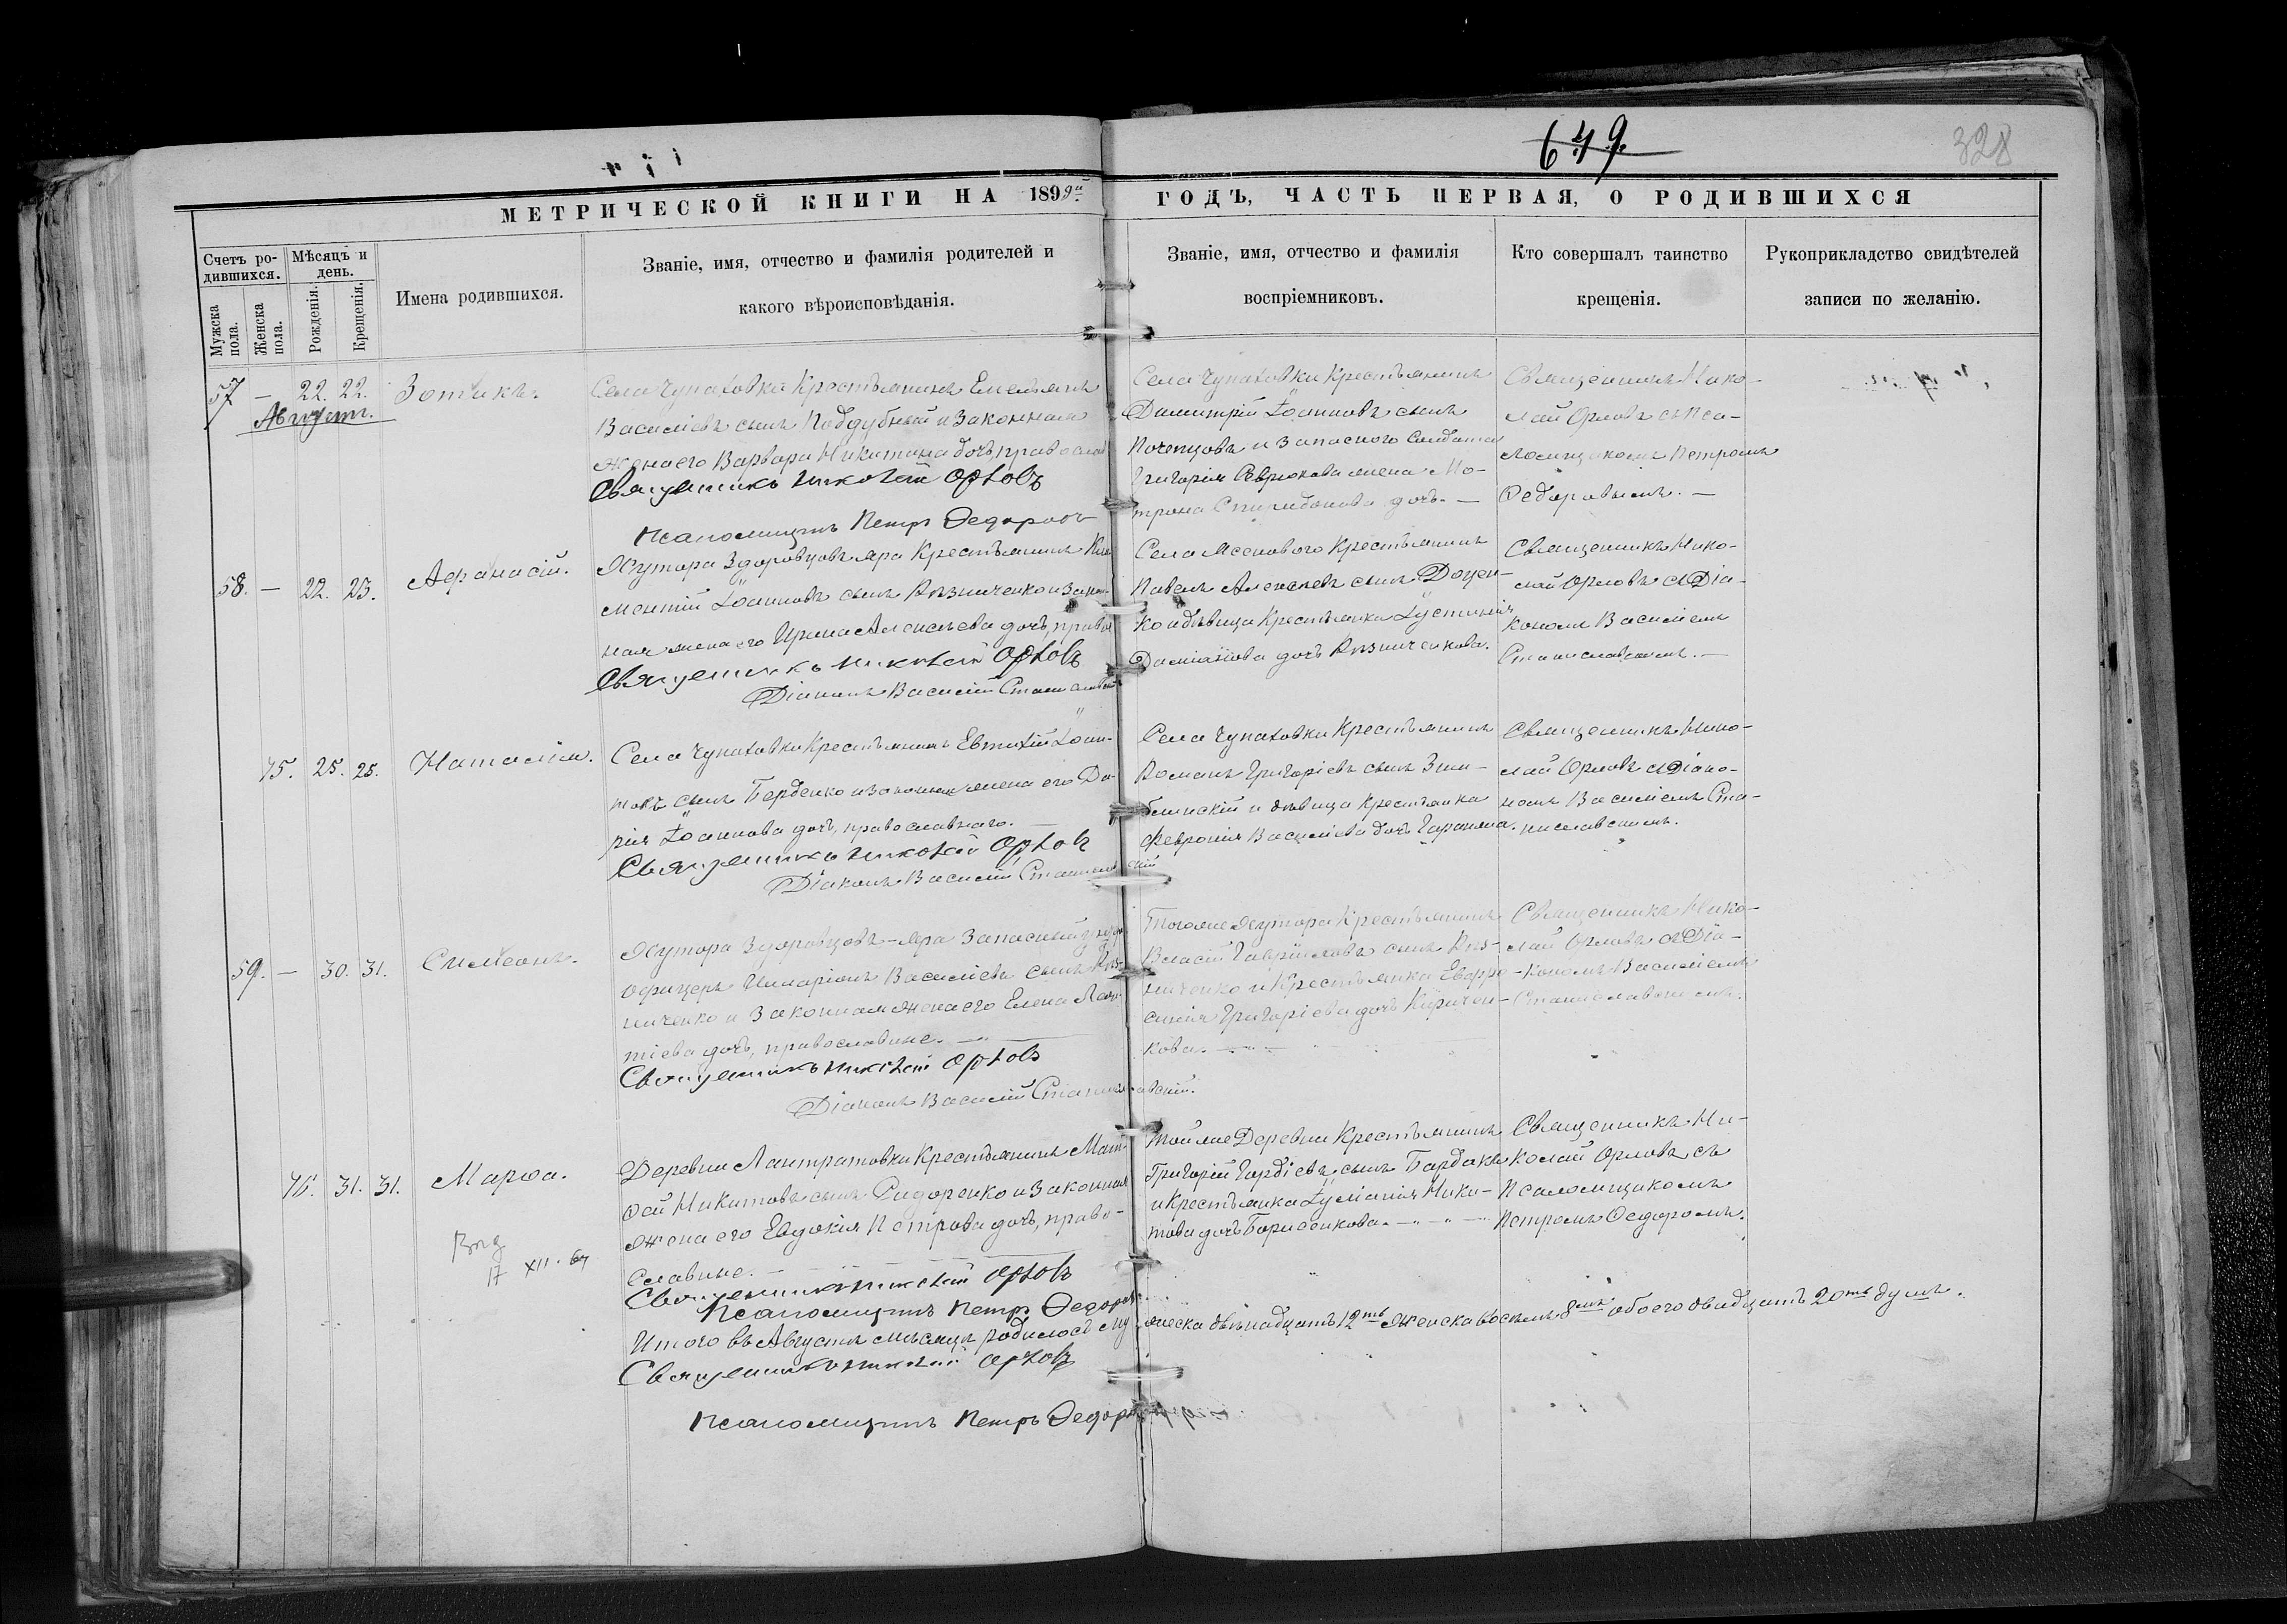 649.
328
МЕТРИЧЕСКОЙ КНИГИ НА 1899й ГОДЪ, ЧАСТЬ ПЕРВАЯ, О РОДИВШИХСЯ
Счетъ ро-
дившихся.
Мужска пола.
Женска пола.
Мѣсяцъ и
день.
Рожденія.
Крещенія.
Имена родившихся.
Званіе, имя, отчество и фамилія родителей и
какого вѣроисповѣданія.
Званіе, имя, отчество и фамилія
воспріемниковъ.
Кто совершалъ таинство
крещенія.
Рукоприкладство свидѣтелей
записи по желанію.
57 — 22. 22. Зотикъ.
Августъ.
Села Чупаховки Крестьянинъ Емельянъ
Василіевъ сынъ Поддубный и Законная
жена его Варвара Никитина дочь, православ
Священникъ Николай Орловъ
Псаломщикъ Петръ Федоровъ
Села Чупаховки Крестьянинъ
Димитрій Іоанновъ сынъ
Поченцовъ и Запасного Солдата
Григорія Севрюкова жена Мо-
трона Спиридонова дочь. —
Священникъ Нико-
лай Орловъ съ Пса-
ломщикомъ Петромъ
Федоровымъ. —
58. — 22. 23. Афанасій.
Хутора Здоровцовъ-яра Крестьянинъ Кли
ментій Іоанновъ сынъ Рѣзниченко и Закон-
ная жена его Ирина Алексѣева дочь, правос
Священникъ Николай Орловъ
Діаконъ Василій Станиславскій
Села Ясеноваго Крестьянинъ
Павелъ Алексѣевъ сынъ Доцен-
ко и дѣвица Крестьянка Іустинія
Даміанова дочь Рѣзниченкова.
Священникъ Нико-
лай Орловъ съ Діа-
кономъ Василіемъ
Станиславскимъ. —
75. 25. 25. Наталія.
Села Чупаховки Крестьянинъ Евтихій Іоан-
новъ сынъ Берденко и Законная жена его Да-
рія Іоаннова дочь, православнаго. —
Священникъ Николай Орловъ
Діаконъ Василій Станиславскій
Села Чупаховки Крестьянинъ
Романъ Григоріевъ сынъ Зин-
бинскій и дѣвица Крестьянка
Февронія Василіева дочь
Священникъ Нико-
лай Орловъ съ Діако-
номъ Василіемъ Ста-
ниславскимъ.
59. — 30. 31. Симеонъ.
Хутора Здоровцовъ-яра Запасный унтеръ
офицеръ Иларіонъ Василіевъ сынъ Рѣз-
ниченко и Законная жена его Елена Леон-
тіева дочь, православные. —
Священникъ Николай Орловъ
Діаконъ Василій Станиславскій.
Того же Хутора Крестьянинъ
Власій Гавріиловъ сынъ Рѣз-
ниченко и Крестьянка Евфро-
синія Григоріева дочь Киричен-
кова. —
Священникъ Нико-
лай Орловъ съ Діа-
кономъ Василіемъ
Станиславскимъ.
76. 31. 31. Марѳа.
17 XII. 64
Деревни Лантратовки Крестьянинъ Мат
ѳей Никитовъ сынъ Сидоренко и Законная
жена его Евдокія Петрова дочь, право-
славные. —
Священникъ Николай Орловъ
Псаломщикъ Петръ Федоровъ
Той же Деревни Крестьянинъ
Григорій Гордіевъ сынъ Бардакъ
и Крестьянка Іуліанія Ники-
това дочь Борисенкова. —
Священникъ Ни-
колай Орловъ съ
Псаломщикомъ
Петромъ Федоромъ.
Итого въ Августѣ мѣсяцѣ родилось мужеска двѣнадцать 12ть женска восемь 8мь обоего двадцать 20ть душъ.
Священникъ Николай Орловъ
Псаломщикъ Петръ Федоровъ